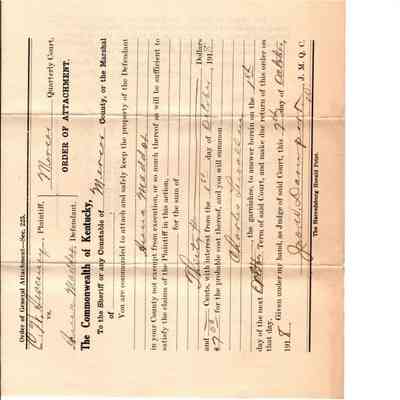 Order of General Attachment—Sec. 225.
Plaintiff, Mercer Quarterly Court,
vs.
Defendant. ORDER OF ATTACHMENT.
The Commonwealth of Kentucky,
To the Sheriff or any Constable of Mercer County, or the Marshal
of
You are commanded to attach and safely keep the property of the Defendant
in your County not exempt from execution, or so much thereof as will be sufficient to
satisfy the claim of the Plaintiff in this action,
for the sum of
Dollars
and Cents, with interest from the 1st day of October 191
for the probable cost thereof, and you will summon
Charlie
the garnishee, to answer herein on the 1st
day of the next Term of said Court, and make due return of this order on
that day.
Given under my hand, as Judge of said Court, this day of October,
191 J. M. Q. C.
The Harrodsburg Herald Print.